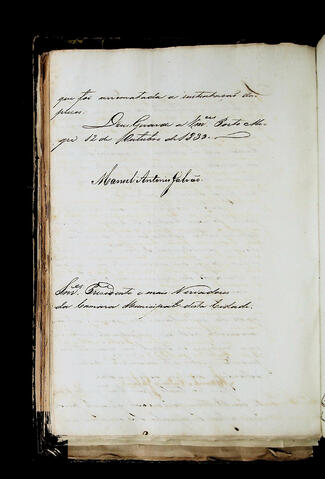 que foi arrematada a illuminação do
preço.
Deus Guarde a Vm.ces Porto Ale-
gre 12 de Outubro de 1833.
Manuel Antonio Galvão.
Snr.es Presidente e mais Vereadores
da Camara Municipal desta Cidade.